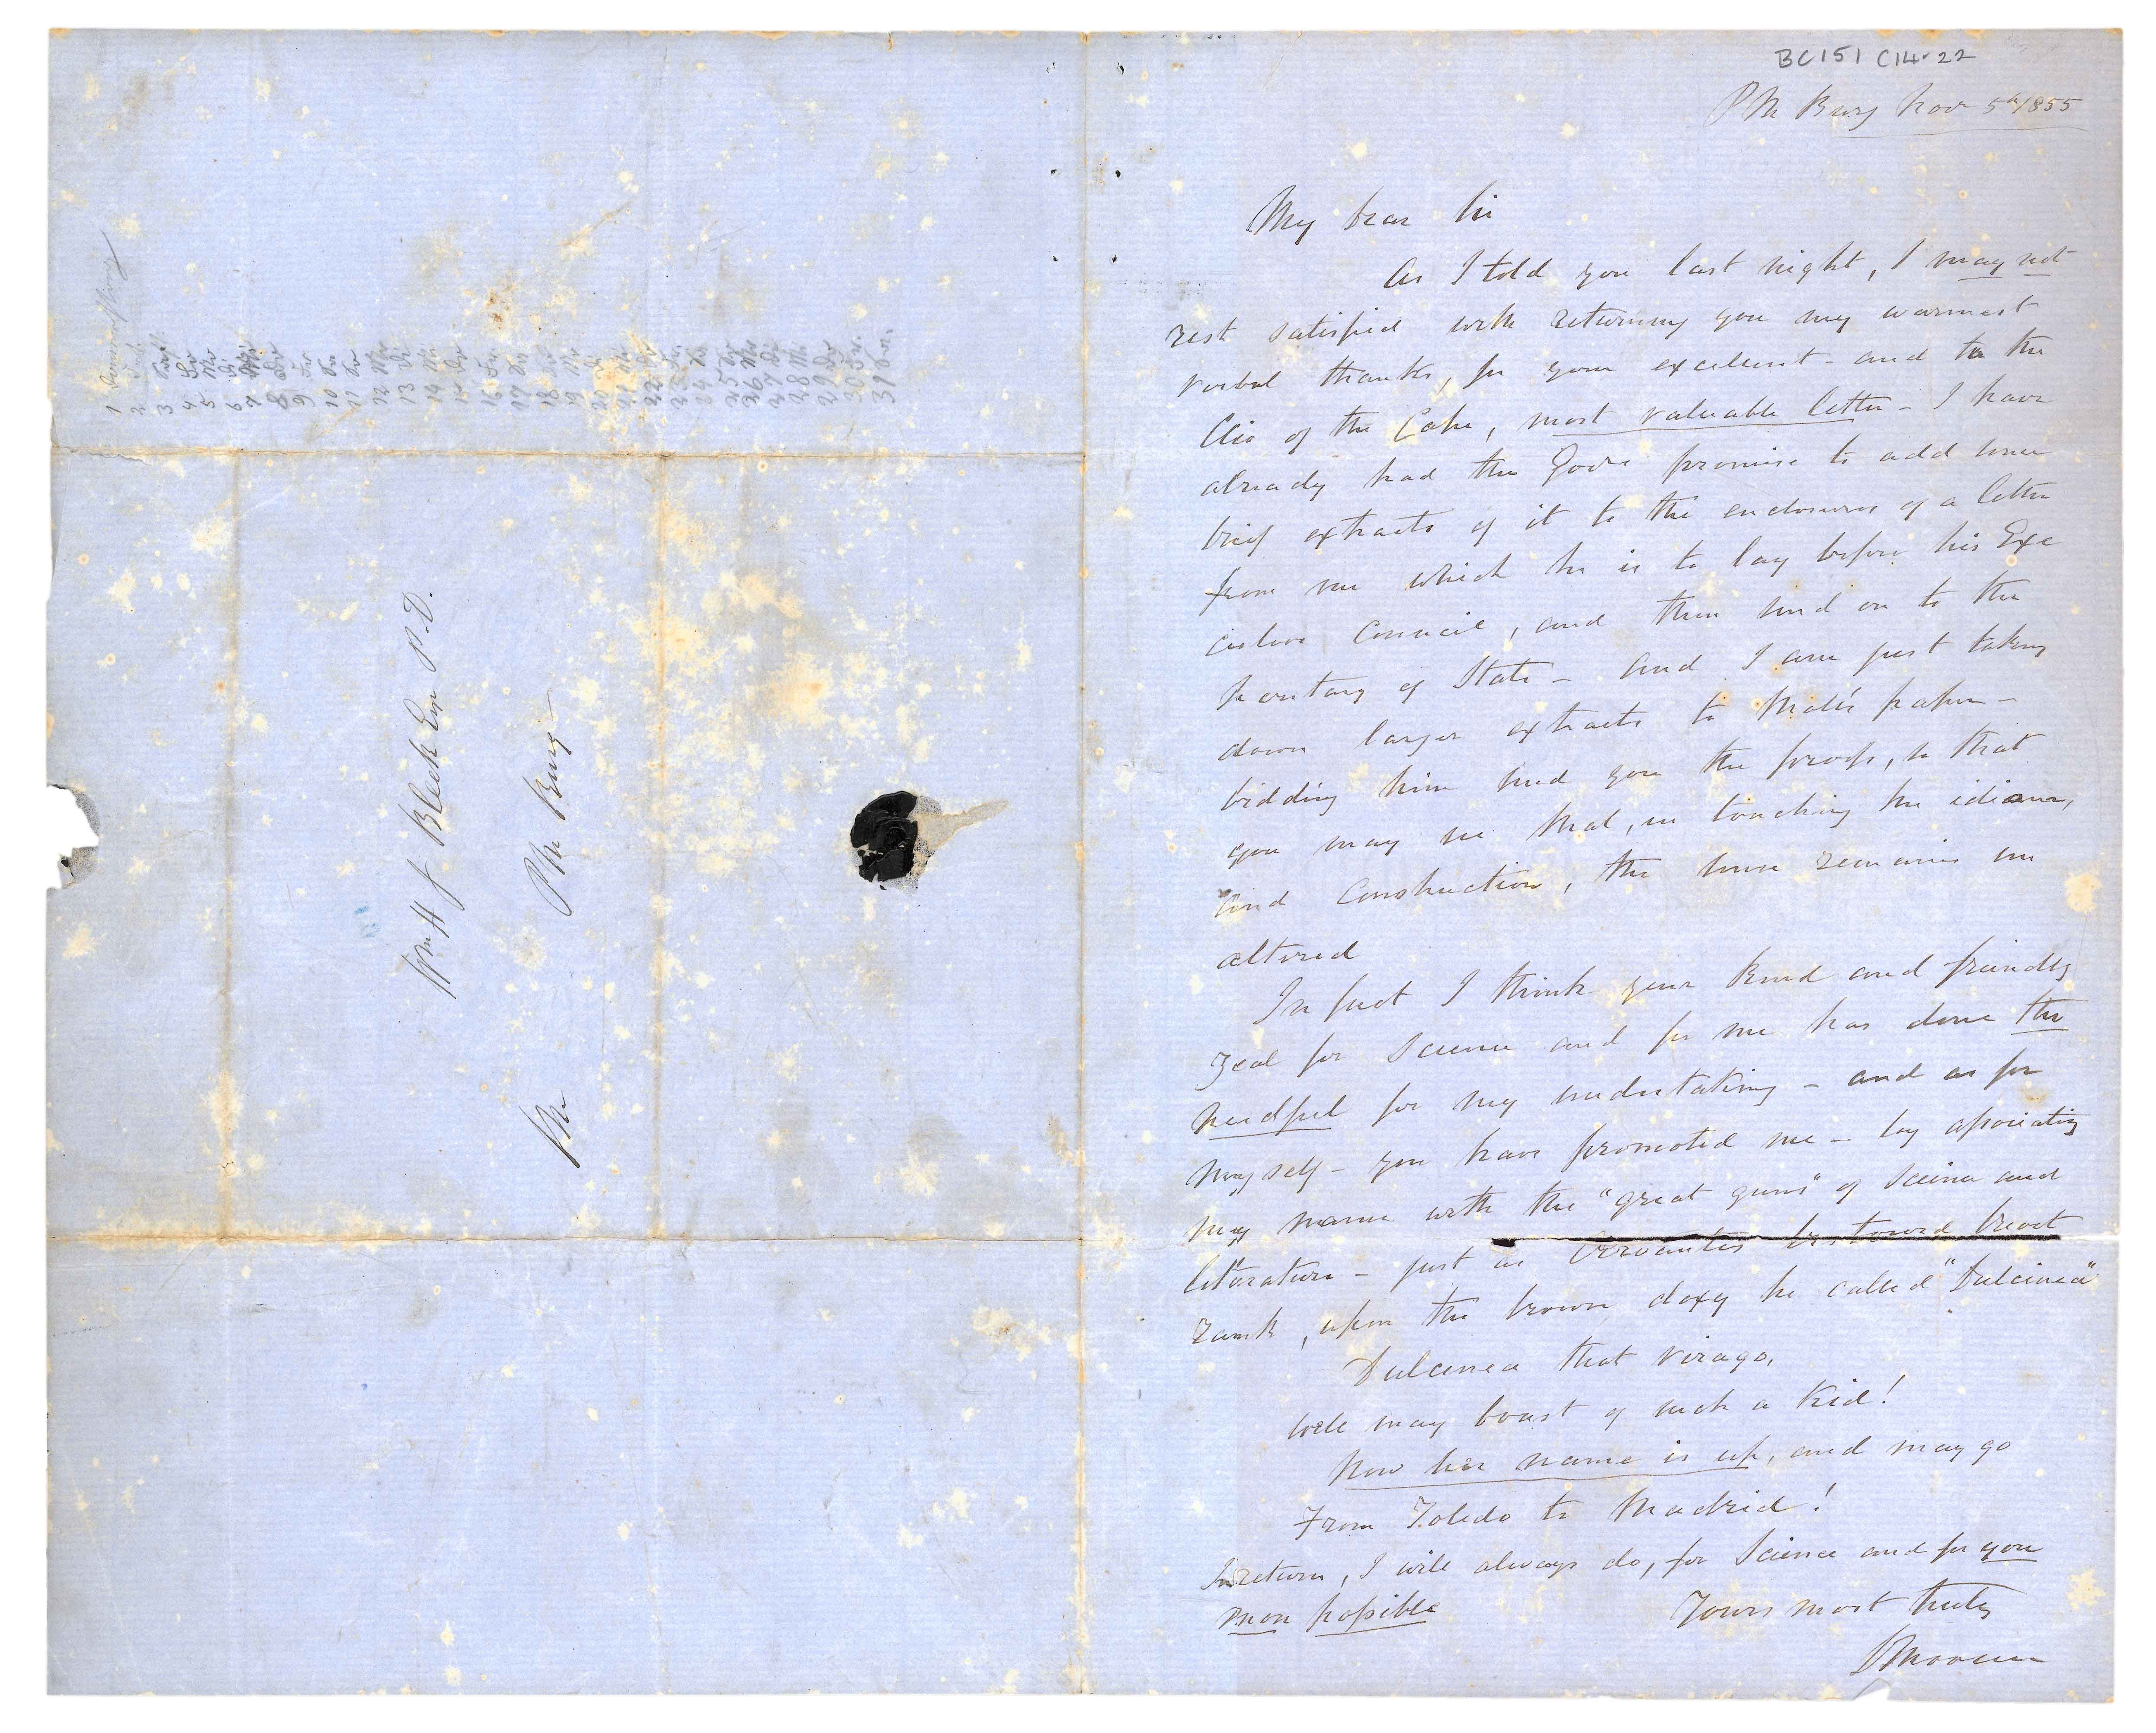 BC151 C14.22
PM Burg Nov 5th/855
My dear Sir
As I told you last night, I may not
rest satisfied with returning you my warmest
verbal thanks, for your excellent - and to the
Clio of the Cape, most valuable letter - I have
already had the Govr promise to add some
brief extracts of it to the enclosures of a letter
from me which he is to lay before his Exe
cutive Council, and then send on to the
Secretary of State - and I am just taking
down larger extracts to paper -
bidding him send you the proofs, so that
you may see that, in touching the idioms,
and construction, the sense remains un
altered
In fact I think your kind and friendly
zeal for Science and for me has done the
needful for my undertaking - and as for
myself - you have promoted me - by associating
my name with the "great guns" of Science and
literature - just as Cervantes bestowed brevet
rank, upon the brown doxy he called "Dulcinea"
Dulcinea that virago,
Well may boast of such a Kid!
Now her name is up, and may go
From Toledo to Madrid!
In return, I will always do, for Science and for you
mon possible
Yours most truly
DMoodie
Wm H J Bleek Esqr P.D.
PM Burg
1 Donnerstag
3
4 So
5 Mo
6 Di
7 Mi
8 Do
9
10 So
11 So
12 Mo
13 Di
14 Mi
15 Do
16
17
18 So
19 Mo
20 Di
21 Mi
22 Do
23
24
25 So
26 Mo
27 Di
28 Mi
29 Do
30
31